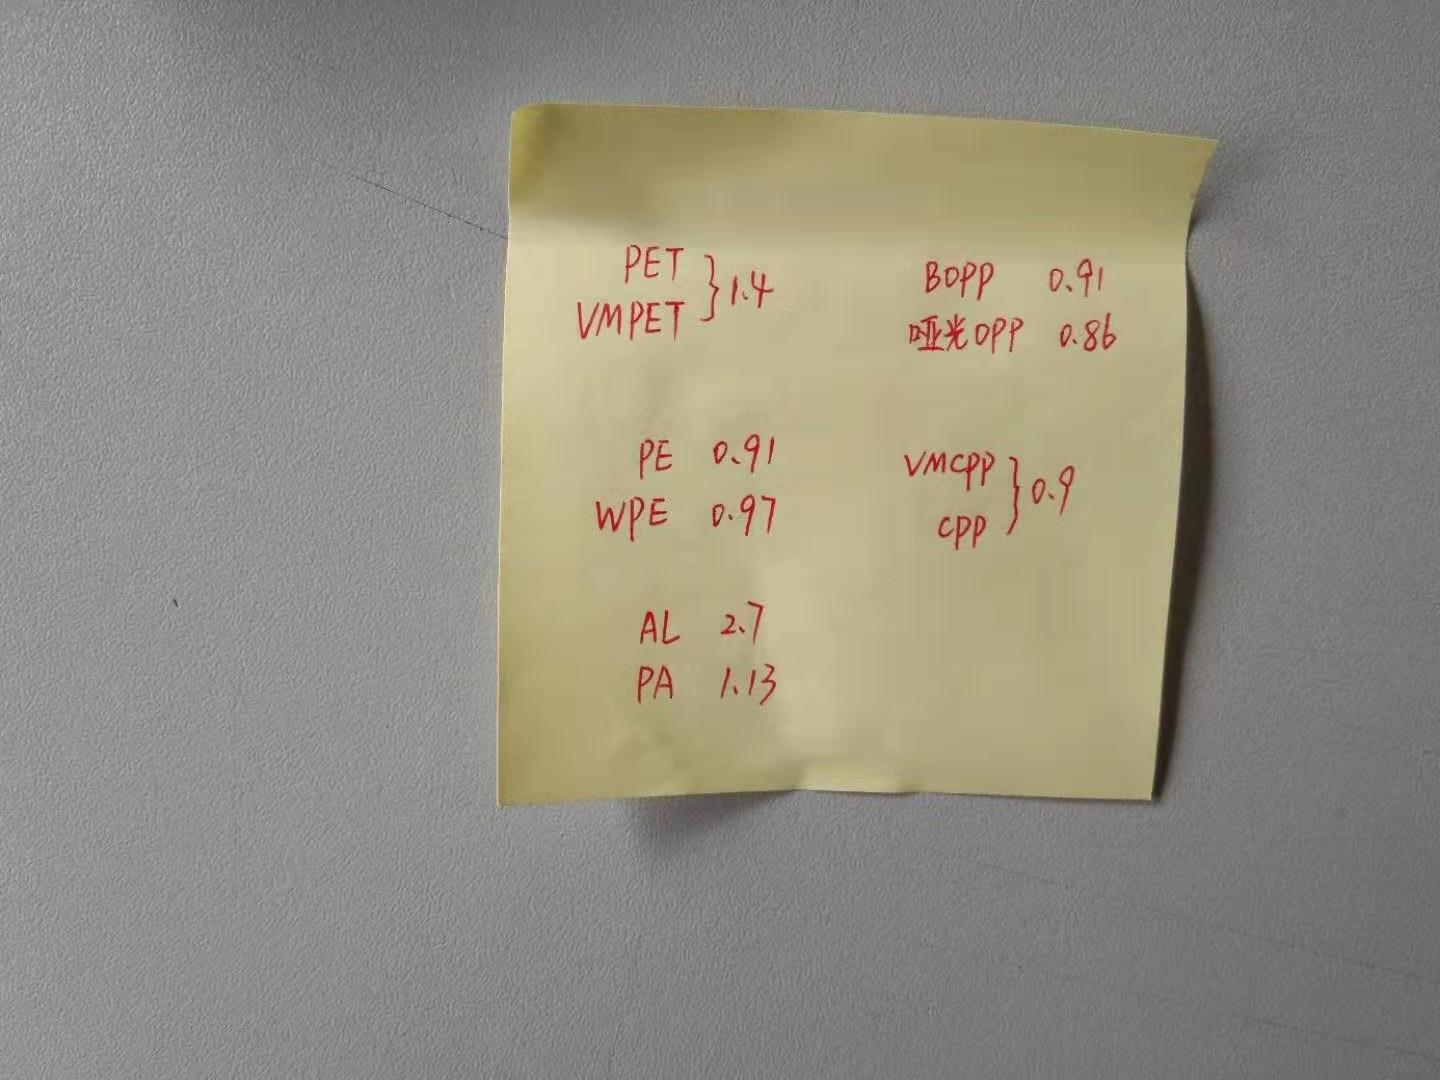 PET
VMPET } 1.4
BOPP 0.91
哑光OPP 0.86
PE 0.91
WPE 0.97
VMCPP
CPP } 0.9
AL 2.7
PA 1.13